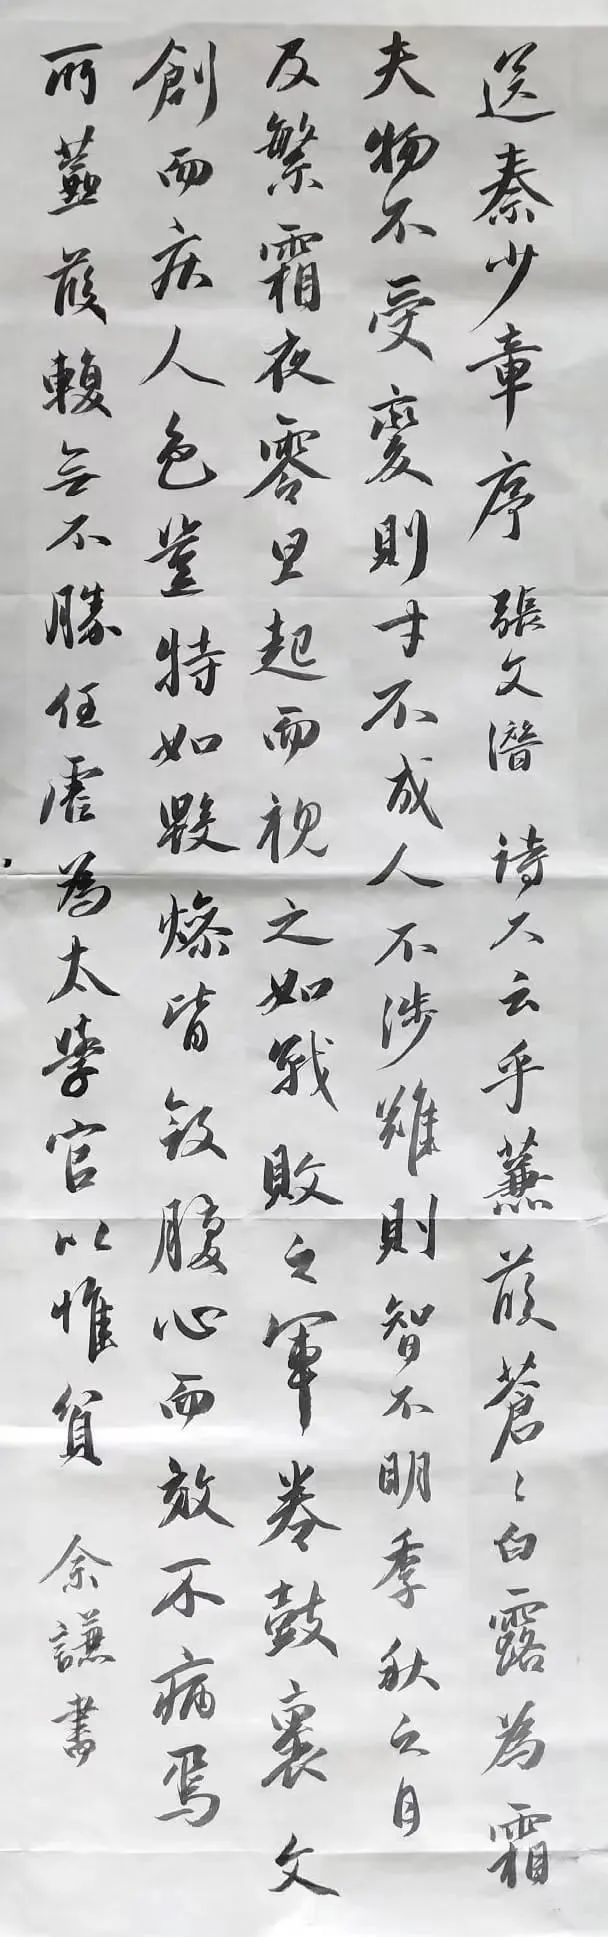 送秦少章序 張文潛 詩不云乎蒹葭蒼〻白露為霜
夫物不受變則才不成人不涉難則智不明季秋之月
及繁霜夜零旦起而視之如戰敗之軍卷鼓裹文
創而疾人色豈特如燬燎皆斂腹心而效不病焉
所蓋葭輒無不勝任虐為太學官以惟貧 余謙書